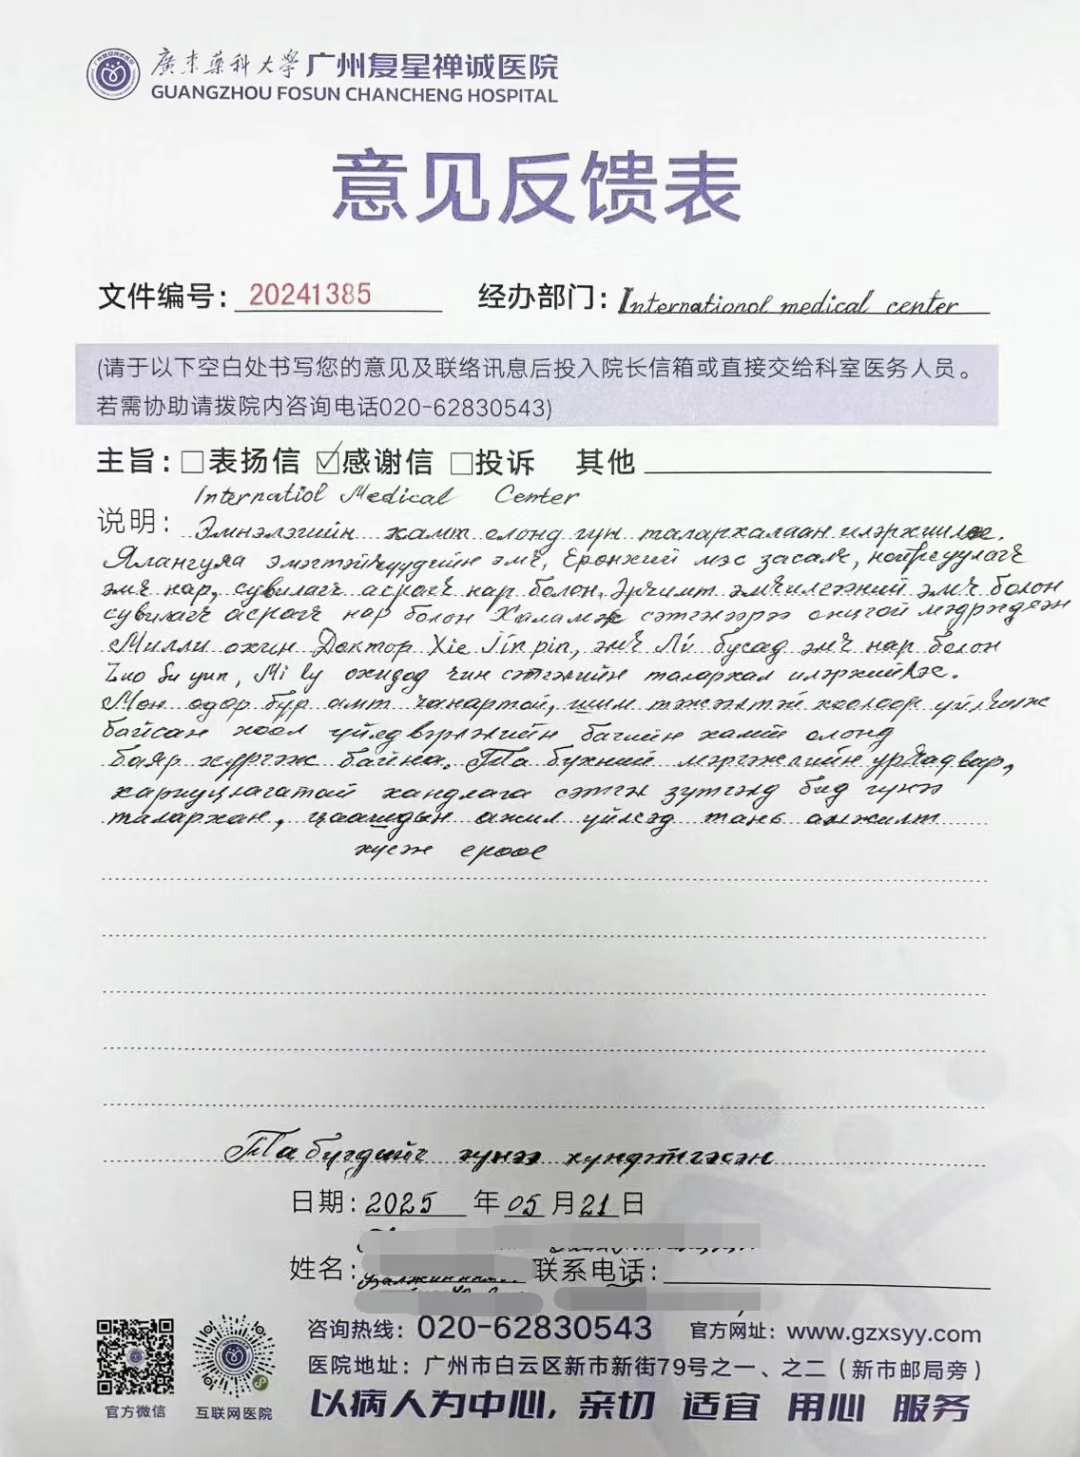 廣東藥科大學 广州复星禅诚医院
GUANGZHOU FOSUN CHANCHENG HOSPITAL
意见反馈表
文件编号: 20241385 经办部门: International medical center
(请于以下空白处书写您的意见及联络讯息后投入院长信箱或直接交给科室医务人员。
若需协助请拨院内咨询电话020-62830543)
主旨: □表扬信 ☑感谢信 □投诉 其他
Internatiol Medical Center
说明: Эмнэлэгийн хамт олонд гүн талархалаан илэрхийлье.
Ялангуяа эмэгтэйчүүдийн эмч, Ерөнхий мэс засалч,
эмч нар, сувилагч асрагч нар болон Эрчимт эмчилгээний эмч болон
сувилагч асрагч нар болон Халамж сэтгэлээрээ
Милли охин Доктор Xie Jin pin, эмч Лú бусад эмч нар болон
Zuo Su yun, Mi ly охидод чин сэтгэлийн талархал илэрхийлье.
Мөн өдөр бүр амт чанартай, шим тэжээлтэй хоолоор үйлчилж
байсан хоол үйлдвэрлэлийн багийн хамт олонд
баяр хүргэж байна. Та бүхний мэргэжлийн ур чадвар,
хариуцлагатай хандлага сэтгэл зүтгэлд бид гүнээ
талархан, цаашдын ажил үйлсэд тань амжилт
хүсэж ерөөе
Та бүгдийг хүнээ хүндэтгэсэн
日期: 2025 年 05 月 21 日
姓名: 联系电话:
咨询热线: 020-62830543 官方网址: www.gzxsyy.com
医院地址: 广州市白云区新市新街79号之一、之二(新市邮局旁)
官方微信 互联网医院 以病人为中心, 亲切 适宜 用心 服务